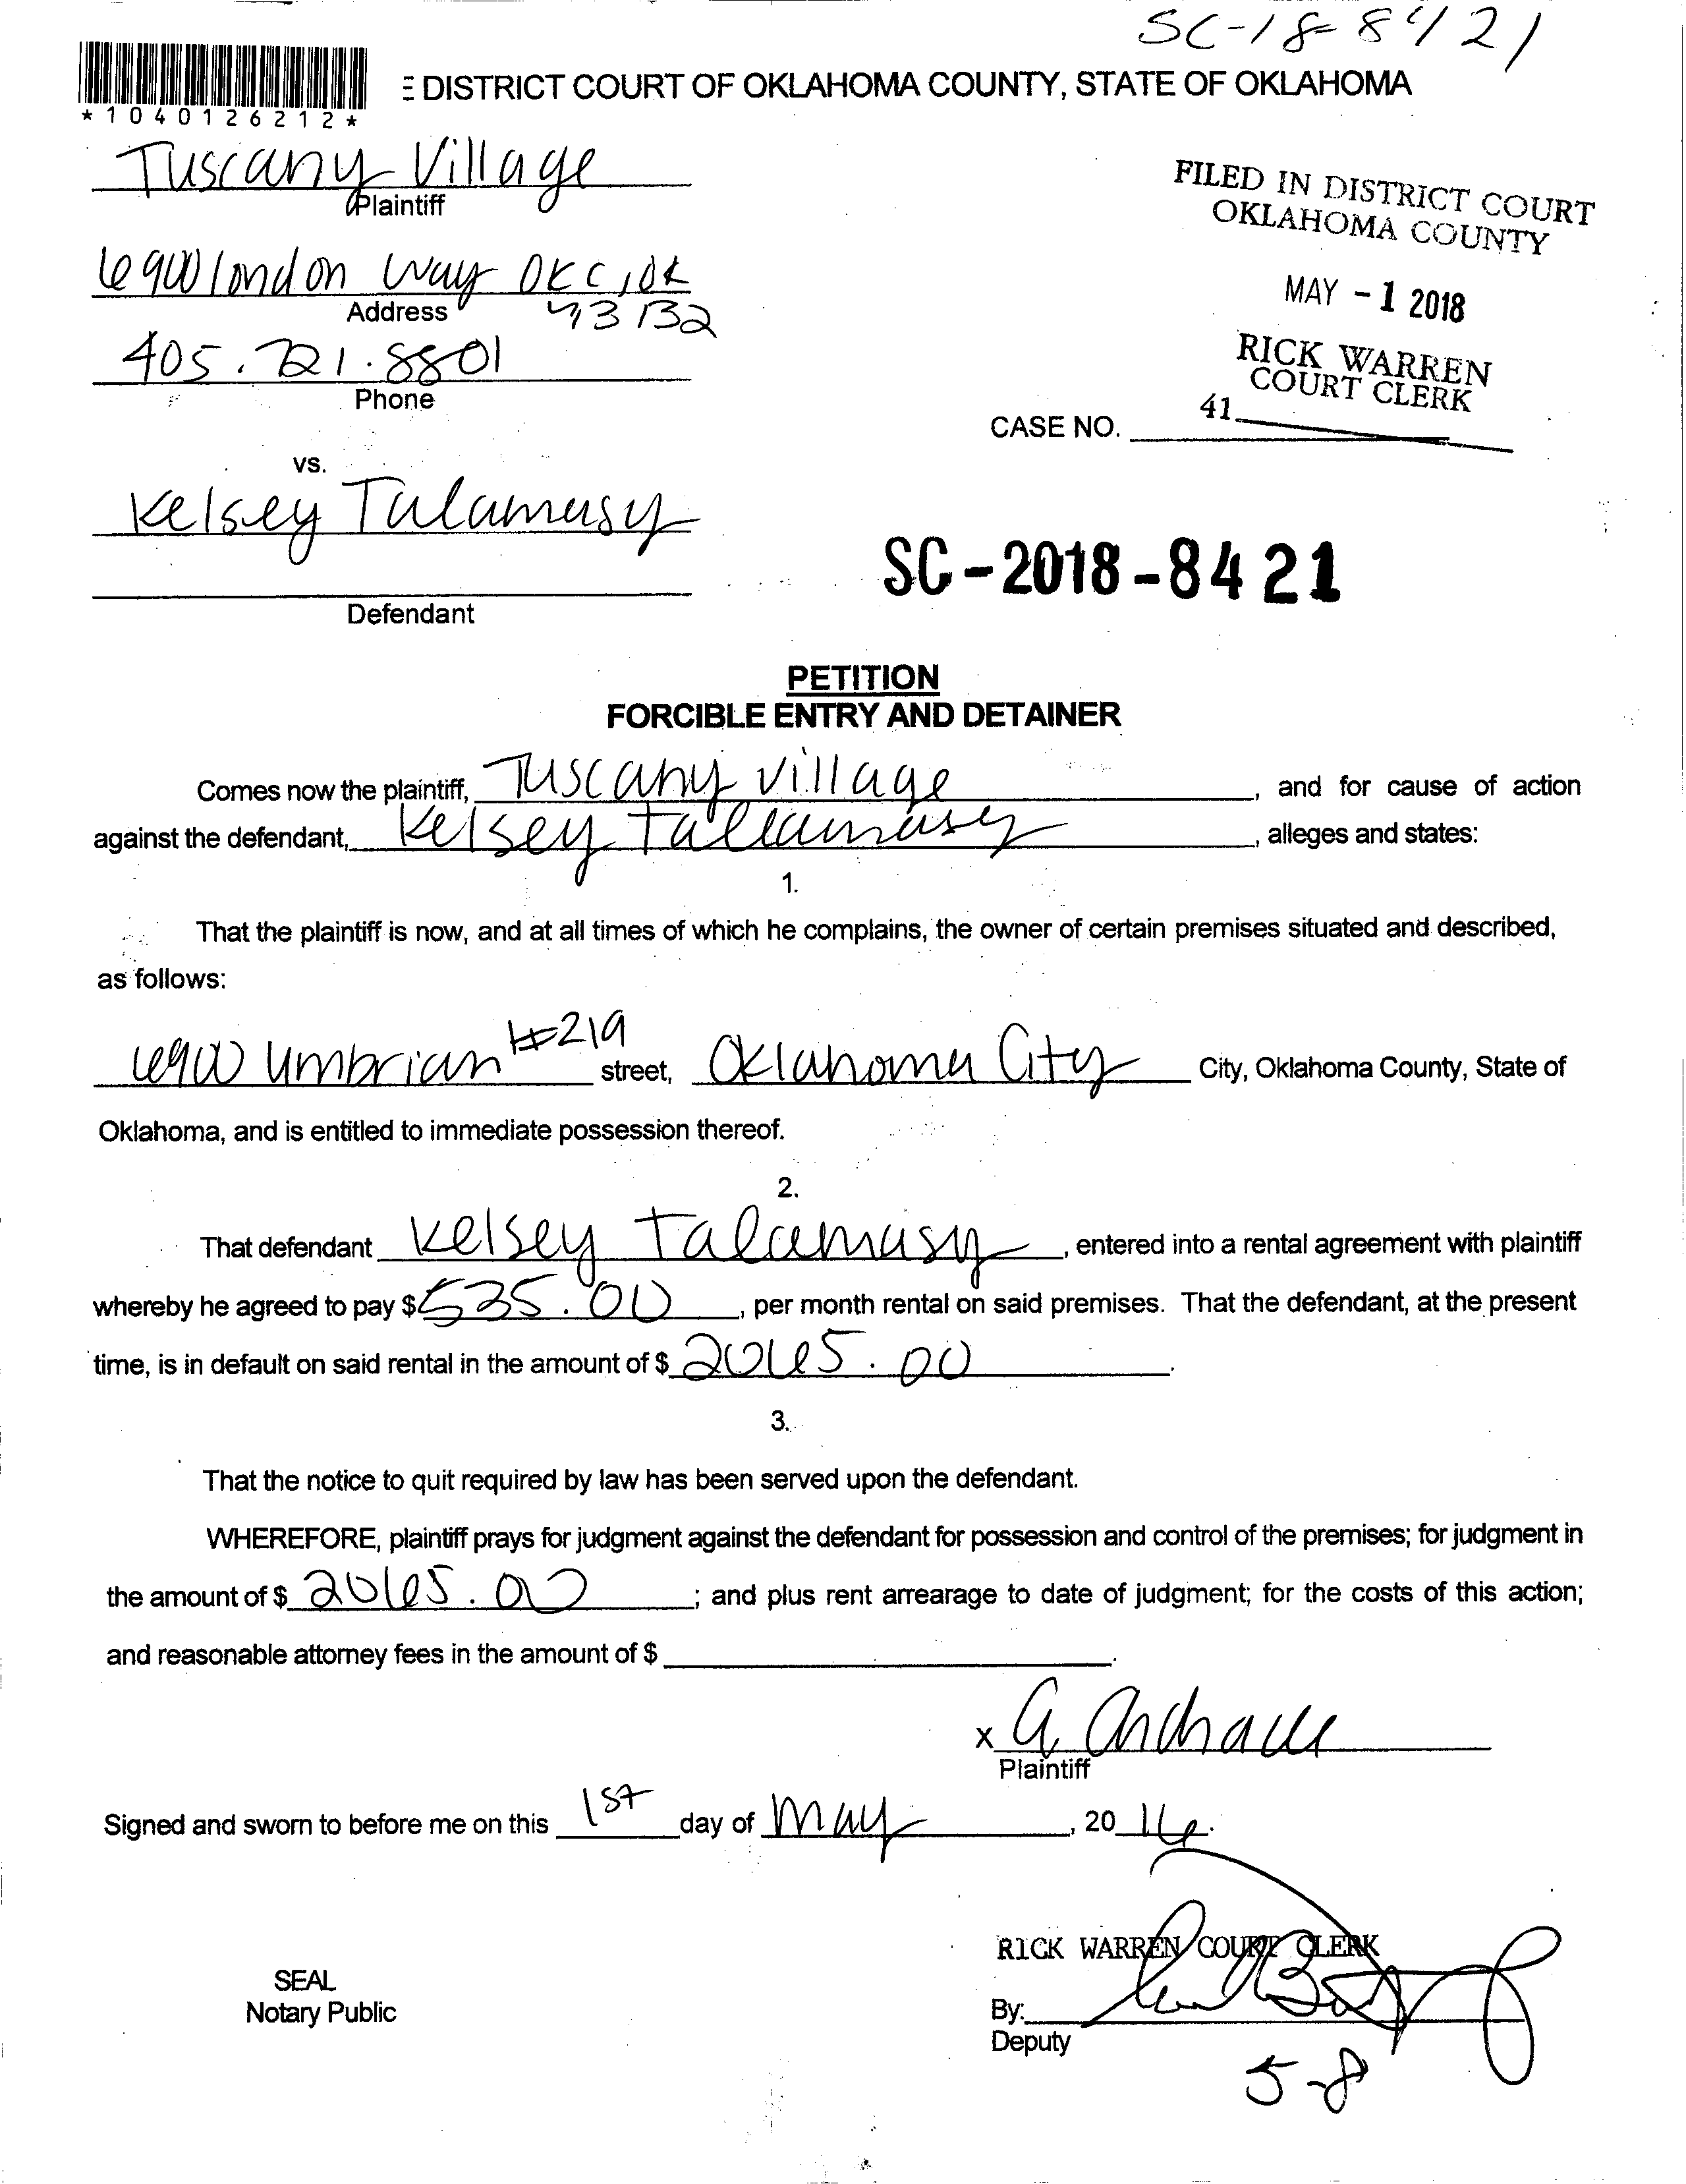 SC-18-8421
*1040126212*
E DISTRICT COURT OF OKLAHOMA COUNTY, STATE OF OKLAHOMA
Tuscany Village
Plaintiff
FILED IN DISTRICT COURT
OKLAHOMA COUNTY
6900 london Way OKC, OK
Address 73132
MAY - 1 2018
405.721.8801
Phone
RICK WARREN
COURT CLERK
41
CASE NO.
vs.
Kelsey Talamasy
Defendant
SC-2018-8421
PETITION
FORCIBLE ENTRY AND DETAINER
Comes now the plaintiff, Tuscany Village, and for cause of action
against the defendant, Kelsey Tallamasy, alleges and states:
1.
That the plaintiff is now, and at all times of which he complains, the owner of certain premises situated and described,
as follows:
6900 umbrian #219 street, Oklahoma City City, Oklahoma County, State of
Oklahoma, and is entitled to immediate possession thereof.
2.
That defendant Kelsey Talamasy, entered into a rental agreement with plaintiff
whereby he agreed to pay $535.00, per month rental on said premises. That the defendant, at the present
time, is in default on said rental in the amount of $2065.00.
3.
That the notice to quit required by law has been served upon the defendant.
WHEREFORE, plaintiff prays for judgment against the defendant for possession and control of the premises; for judgment in
the amount of $2065.00; and plus rent arrearage to date of judgment; for the costs of this action;
and reasonable attorney fees in the amount of $.
x A. Andrade
Plaintiff
Signed and sworn to before me on this 1st day of May, 2016.
RICK WARREN COURT CLERK
SEAL
Notary Public
By:
Deputy
5-8